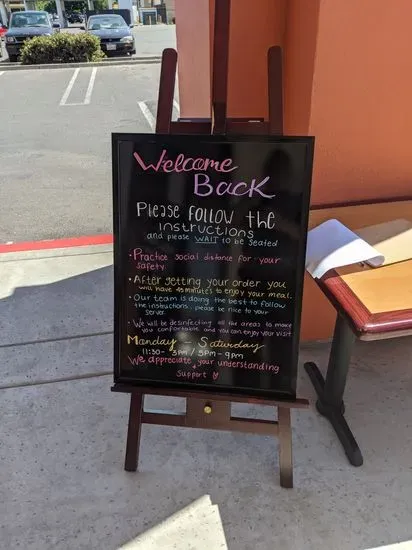 Welcome
Back
Please follow the
instructions
and please WAIT to be seated
• Practice social distance for your
safety.
• After getting your order you
will have 45 minutes to enjoy your meal.
• Our team is doing the best to follow
the instructions, please be nice to your
server.
• We will be desinfecting all the areas to make
you comfortable and you can enjoy your visit
Manday - Saturday
11:30 - 3pm / 5pm - 9pm
We appreciate your understanding
+
Support